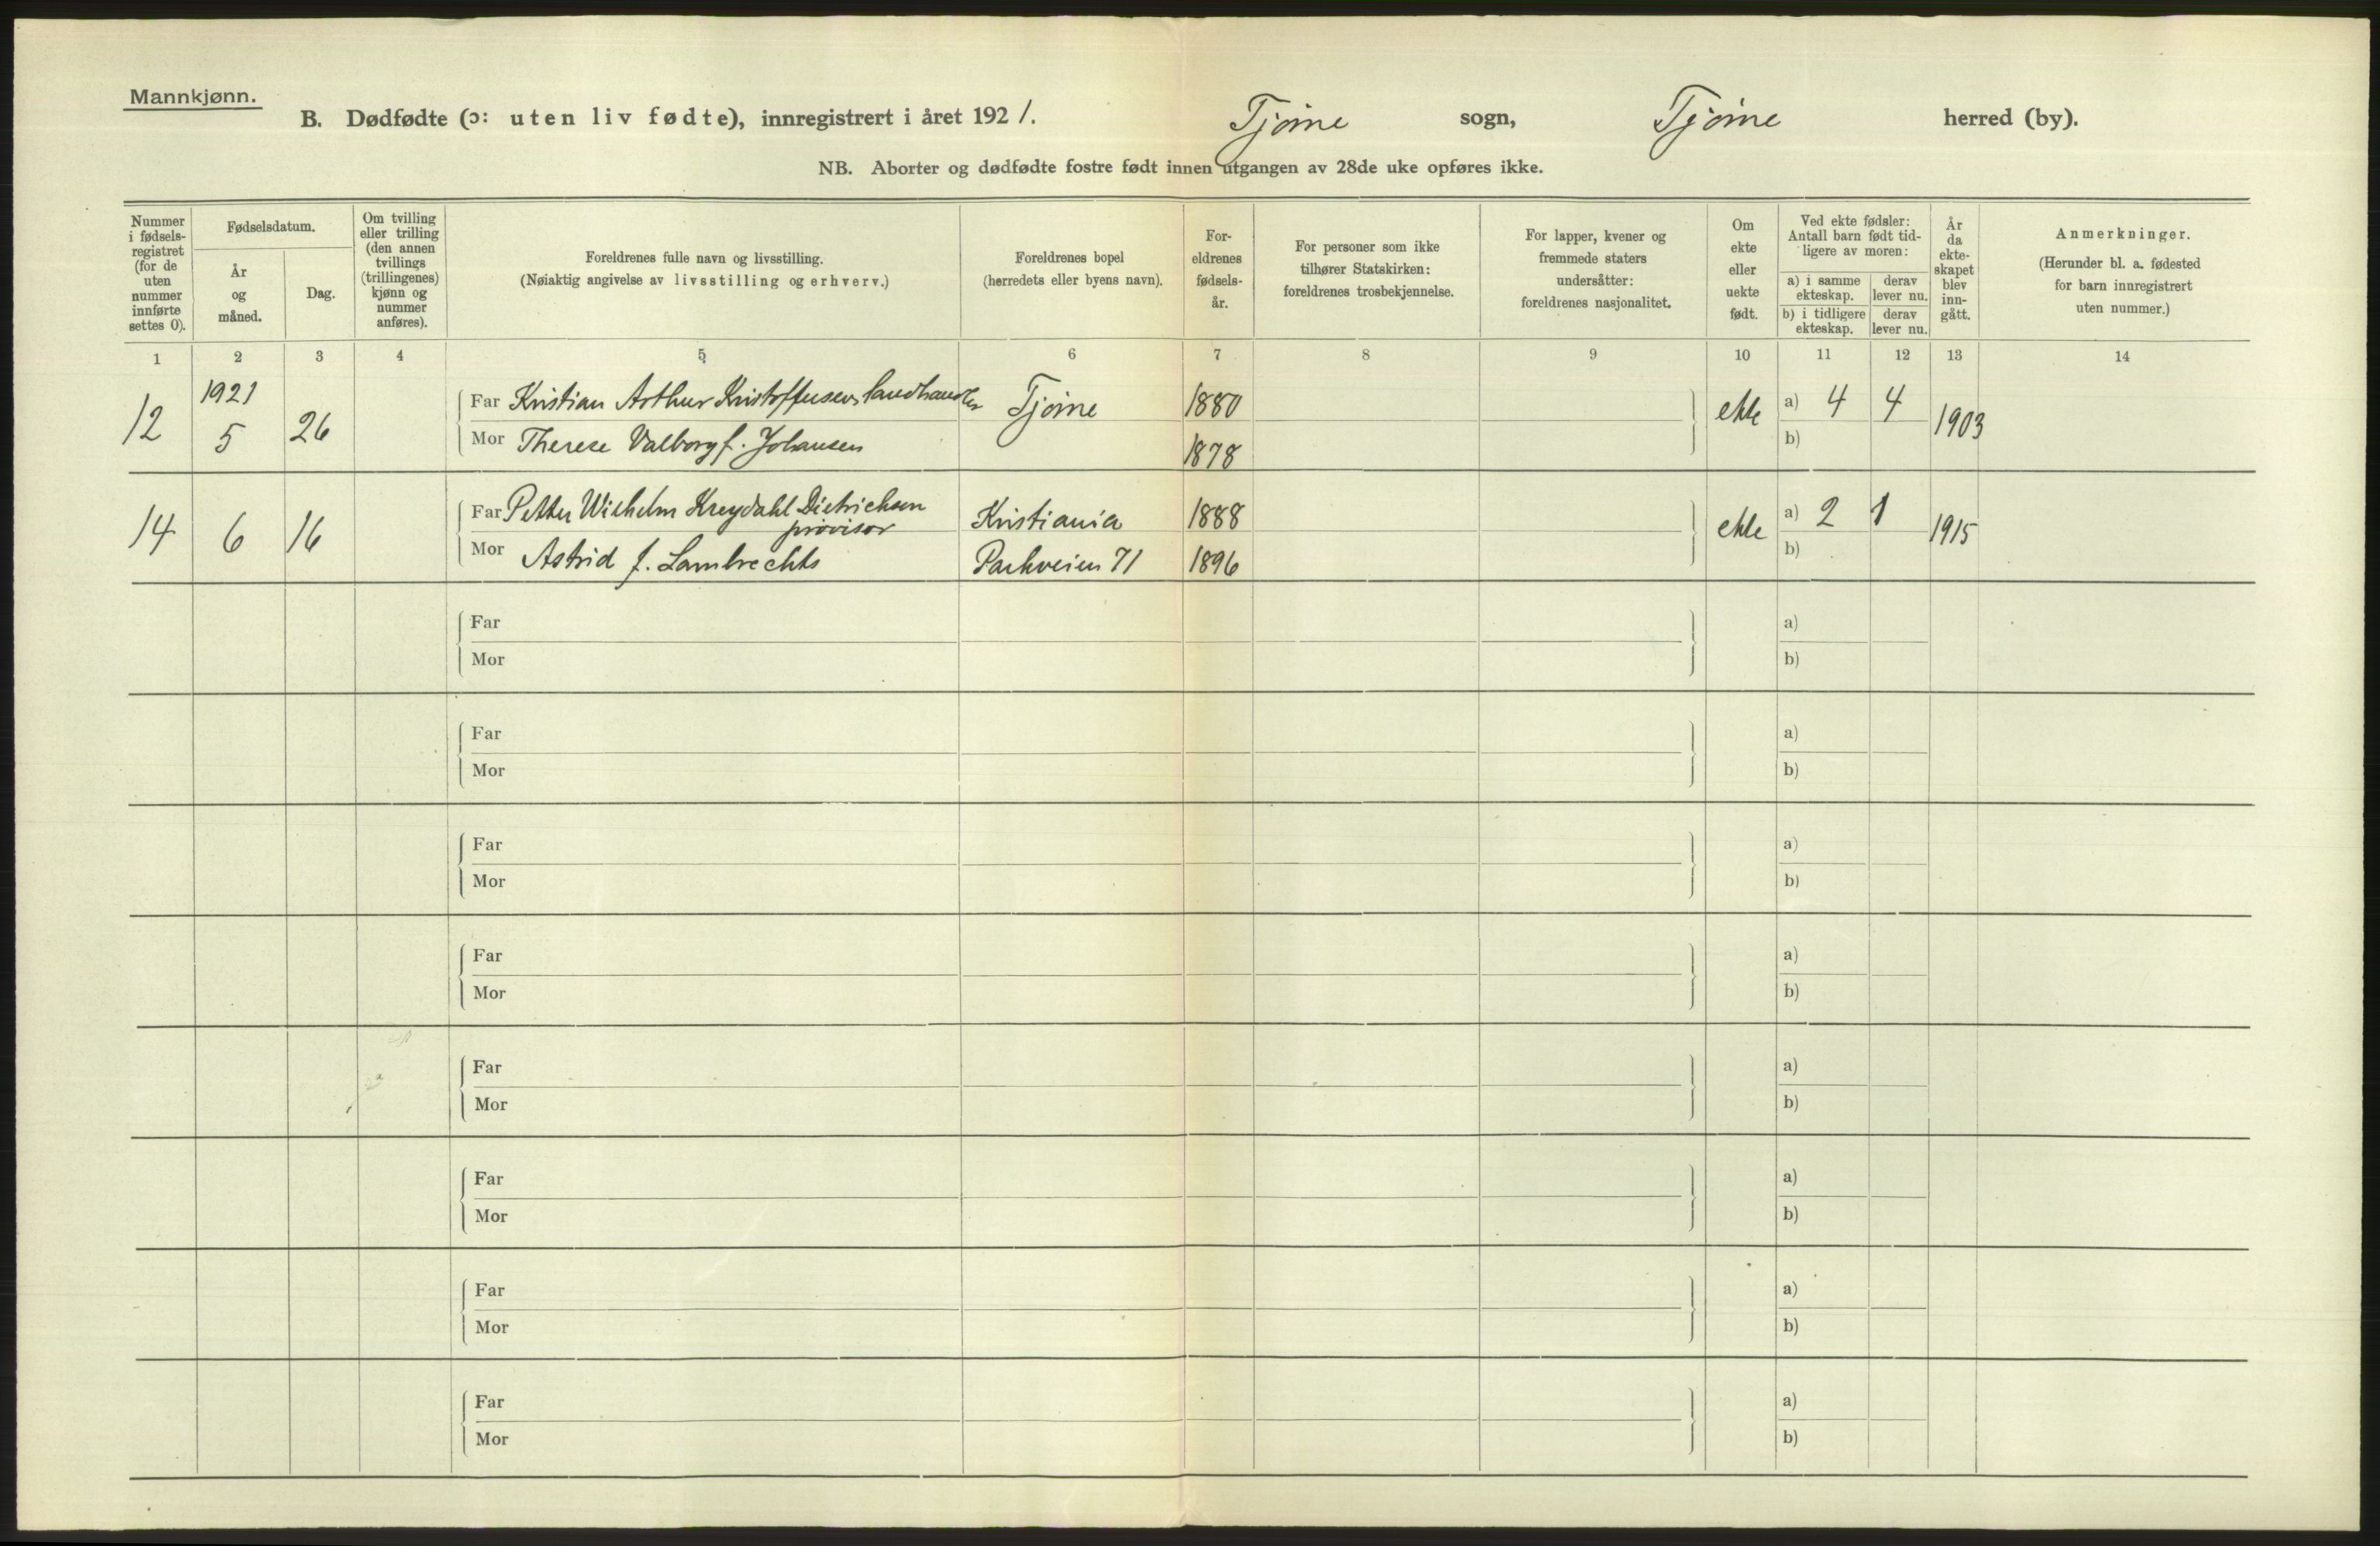 Mannkjønn.
B. Dødfødte (ɔ: uten liv fødte), innregistrert i året 1921. Tjøme sogn, Tjøme herred (by).
NB. Aborter og dødfødte fostre født innen utgangen av 28de uke opføres ikke.
Nummer i fødsels-registret (for de uten nummer innførte settes 0).
Fødselsdatum.
År og måned.
Dag.
Om tvilling eller trilling (den annen tvillings (trillingenes) kjønn og nummer anføres).
Foreldrenes fulle navn og livsstilling.
(Nøiaktig angivelse av livsstilling og erhverv.)
Foreldrenes bopel
(herredets eller byens navn).
For-eldrenes fødsels-år.
For personer som ikke tilhører Statskirken: foreldrenes trosbekjennelse.
For lapper, kvener og fremmede staters undersåtter: foreldrenes nasjonalitet.
Om ekte eller uekte født.
Ved ekte fødsler: Antall barn født tid-ligere av moren:
a) i samme ekteskap. derav lever nu.
b) i tidligere ekteskap. derav lever nu.
År da ekte-skapet blev inn-gått.
Anmerkninger.
(Herunder bl. a. fødested for barn innregistrert uten nummer.)
1 2 3 4 5 6 7 8 9 10 11 12 13 14
12 1921 5 26 Far Kristian Arthur Kristoffersen landhandler Tjøme 1880 ekte a) 4 4 1903
Mor Therese Valborg f. Johansen 1878 b)
14 6 16 Far Petter Wilhelm Kreydahl Dietrichson provisor Kristiania 1888 ekte a) 2 1 1915
Mor Astrid f. Lambrechts Parkveien 71 1896 b)
Far a)
Mor b)
Far a)
Mor b)
Far a)
Mor b)
Far a)
Mor b)
Far a)
Mor b)
Far a)
Mor b)
Far a)
Mor b)
Far a)
Mor b)